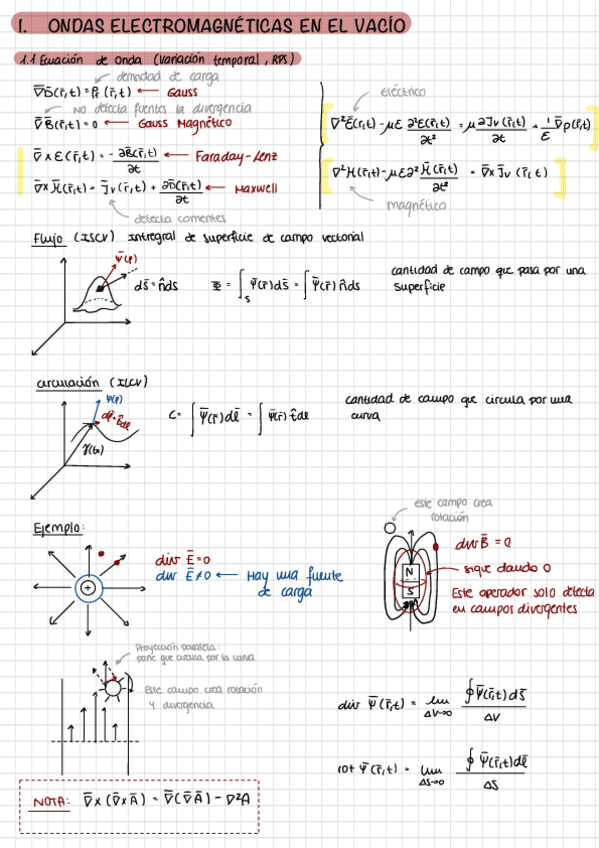 1. ONDAS ELECTROMAGNÉTICAS EN EL VACÍO
1.1 Ecuación de onda (variación temporal, RPS)
densidad de carga
∇̄D̄(r̄,t) = ρ_t(r̄,t) ← Gauss
No detecta fuentes la divergencia
∇̄B̄(r̄,t) = 0 ← Gauss Magnético
∇̄×Ē(r̄,t) = -∂B̄(r̄,t)/∂t ← Faraday-Lenz
∇̄×H̄(r̄,t) = J̄v(r̄,t) + ∂D̄(r̄,t)/∂t ← Maxwell
detecta corrientes
eléctrico
∇²Ē(r̄,t) - με ∂²Ē(r̄,t)/∂t² = μ ∂J̄v(r̄,t)/∂t + 1/ε ∇̄ρ(r̄,t)
∇²H̄(r̄,t) - με∂² H̄(r̄,t)/∂t² = -∇̄× J̄v(r̄,t)
magnético
Flujo (ISCV) Intregral de superficie de campo vectorial
Ψ̄(P)
ds̄ = n̂ds
Φ = ∫_S Ψ̄(r̄)ds̄ = ∫ Ψ̄(r̄) n̂ds
cantidad de campo que pasa por una
superficie
circulación (ILCV)
Ψ(P)
dl̄ = t̂dl
γ(t₀)
C = ∫ Ψ̄(r̄)dl̄ = ∫ Ψ̄(r̄) t̂dl
cantidad de campo que circula por una
curva
Ejemplo:
+
div Ē = 0
div Ē ≠ 0 ← Hay una fuente
de carga
este campo crea
rotación
N
S
div B̄ = 0
sigue dando 0
Este operador solo detecta
en campos divergentes
Proyección paralela:
parte que circula por la curva
Este campo crea rotación
y divergencia
div Ψ̄(r̄,t) = lim ΔV→0 ∮Ψ̄(r̄,t)ds̄ / ΔV
rot Ψ̄(r̄,t) = lim ΔS→0 ∮ Ψ̄(r̄,t)dl̄ / ΔS
NOTA: ∇̄×(∇̄×Ā) = ∇̄(∇̄Ā) - ∇²A